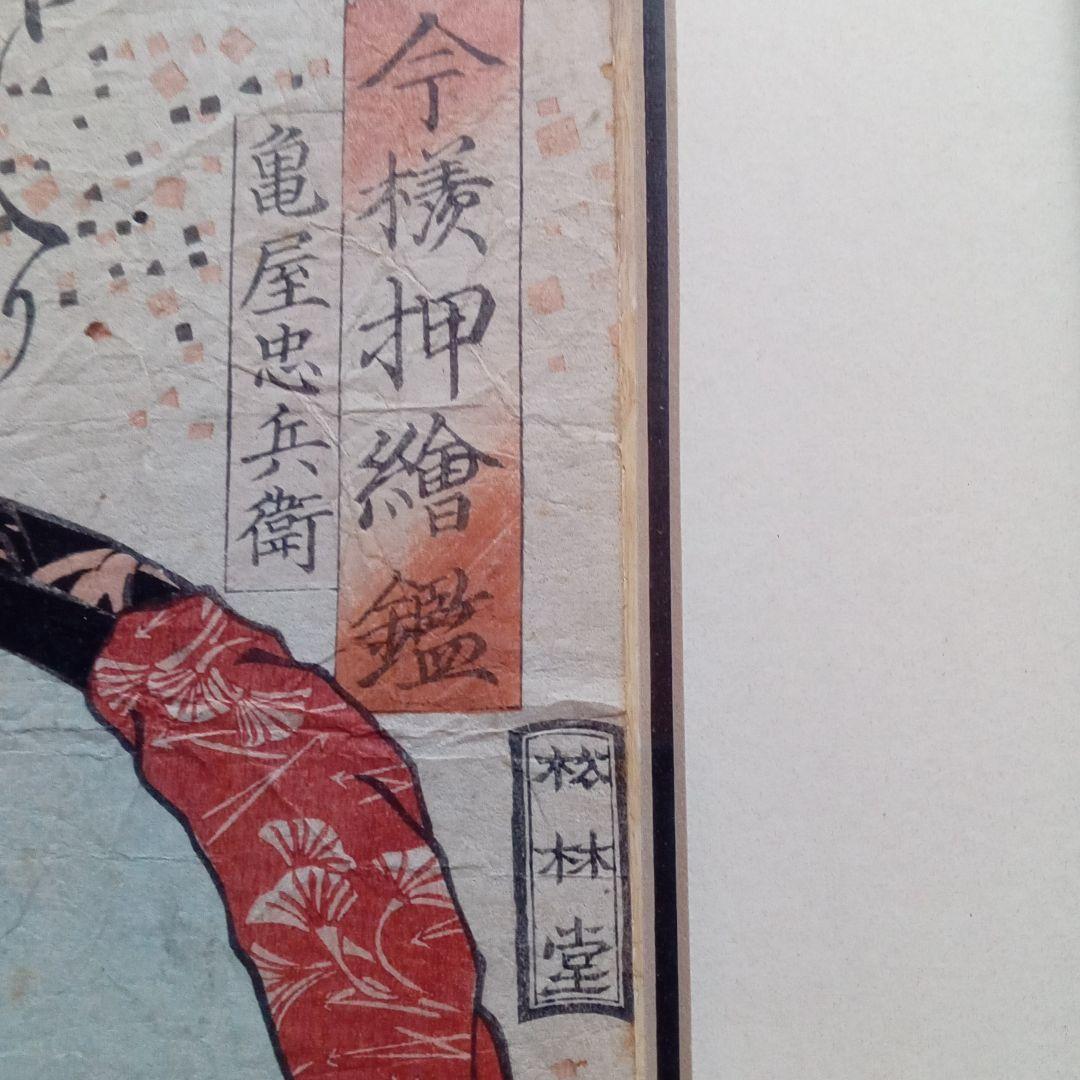 今様押繪鑑
亀屋忠兵衛
松林堂
り